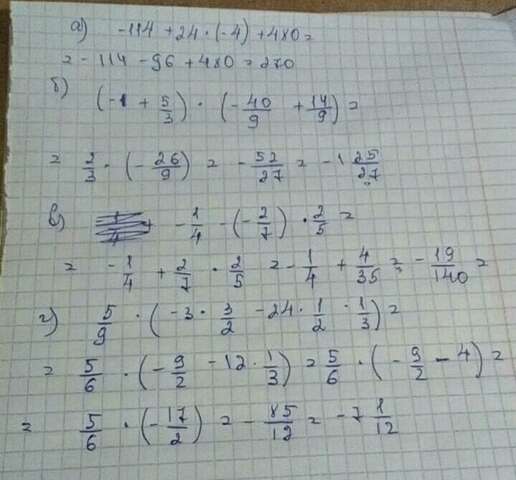 а) -114 + 24 · (-4) + 480 =
= -114 - 96 + 480 = 270
б) (-1 + 5/3) · (-40/9 + 14/9) =
= 2/3 · (-26/9) = -52/27 = -1 25/27
в) -1/4 - (-2/7) · 2/5 =
= -1/4 + 2/7 · 2/5 = -1/4 + 4/35 = -19/140 =
г) 5/9 · (-3 · 3/2 - 24 · 1/2 · 1/3) =
= 5/6 · (-9/2 - 12 · 1/3) = 5/6 · (-9/2 - 4) =
= 5/6 · (-17/2) = -85/12 = -7 1/12